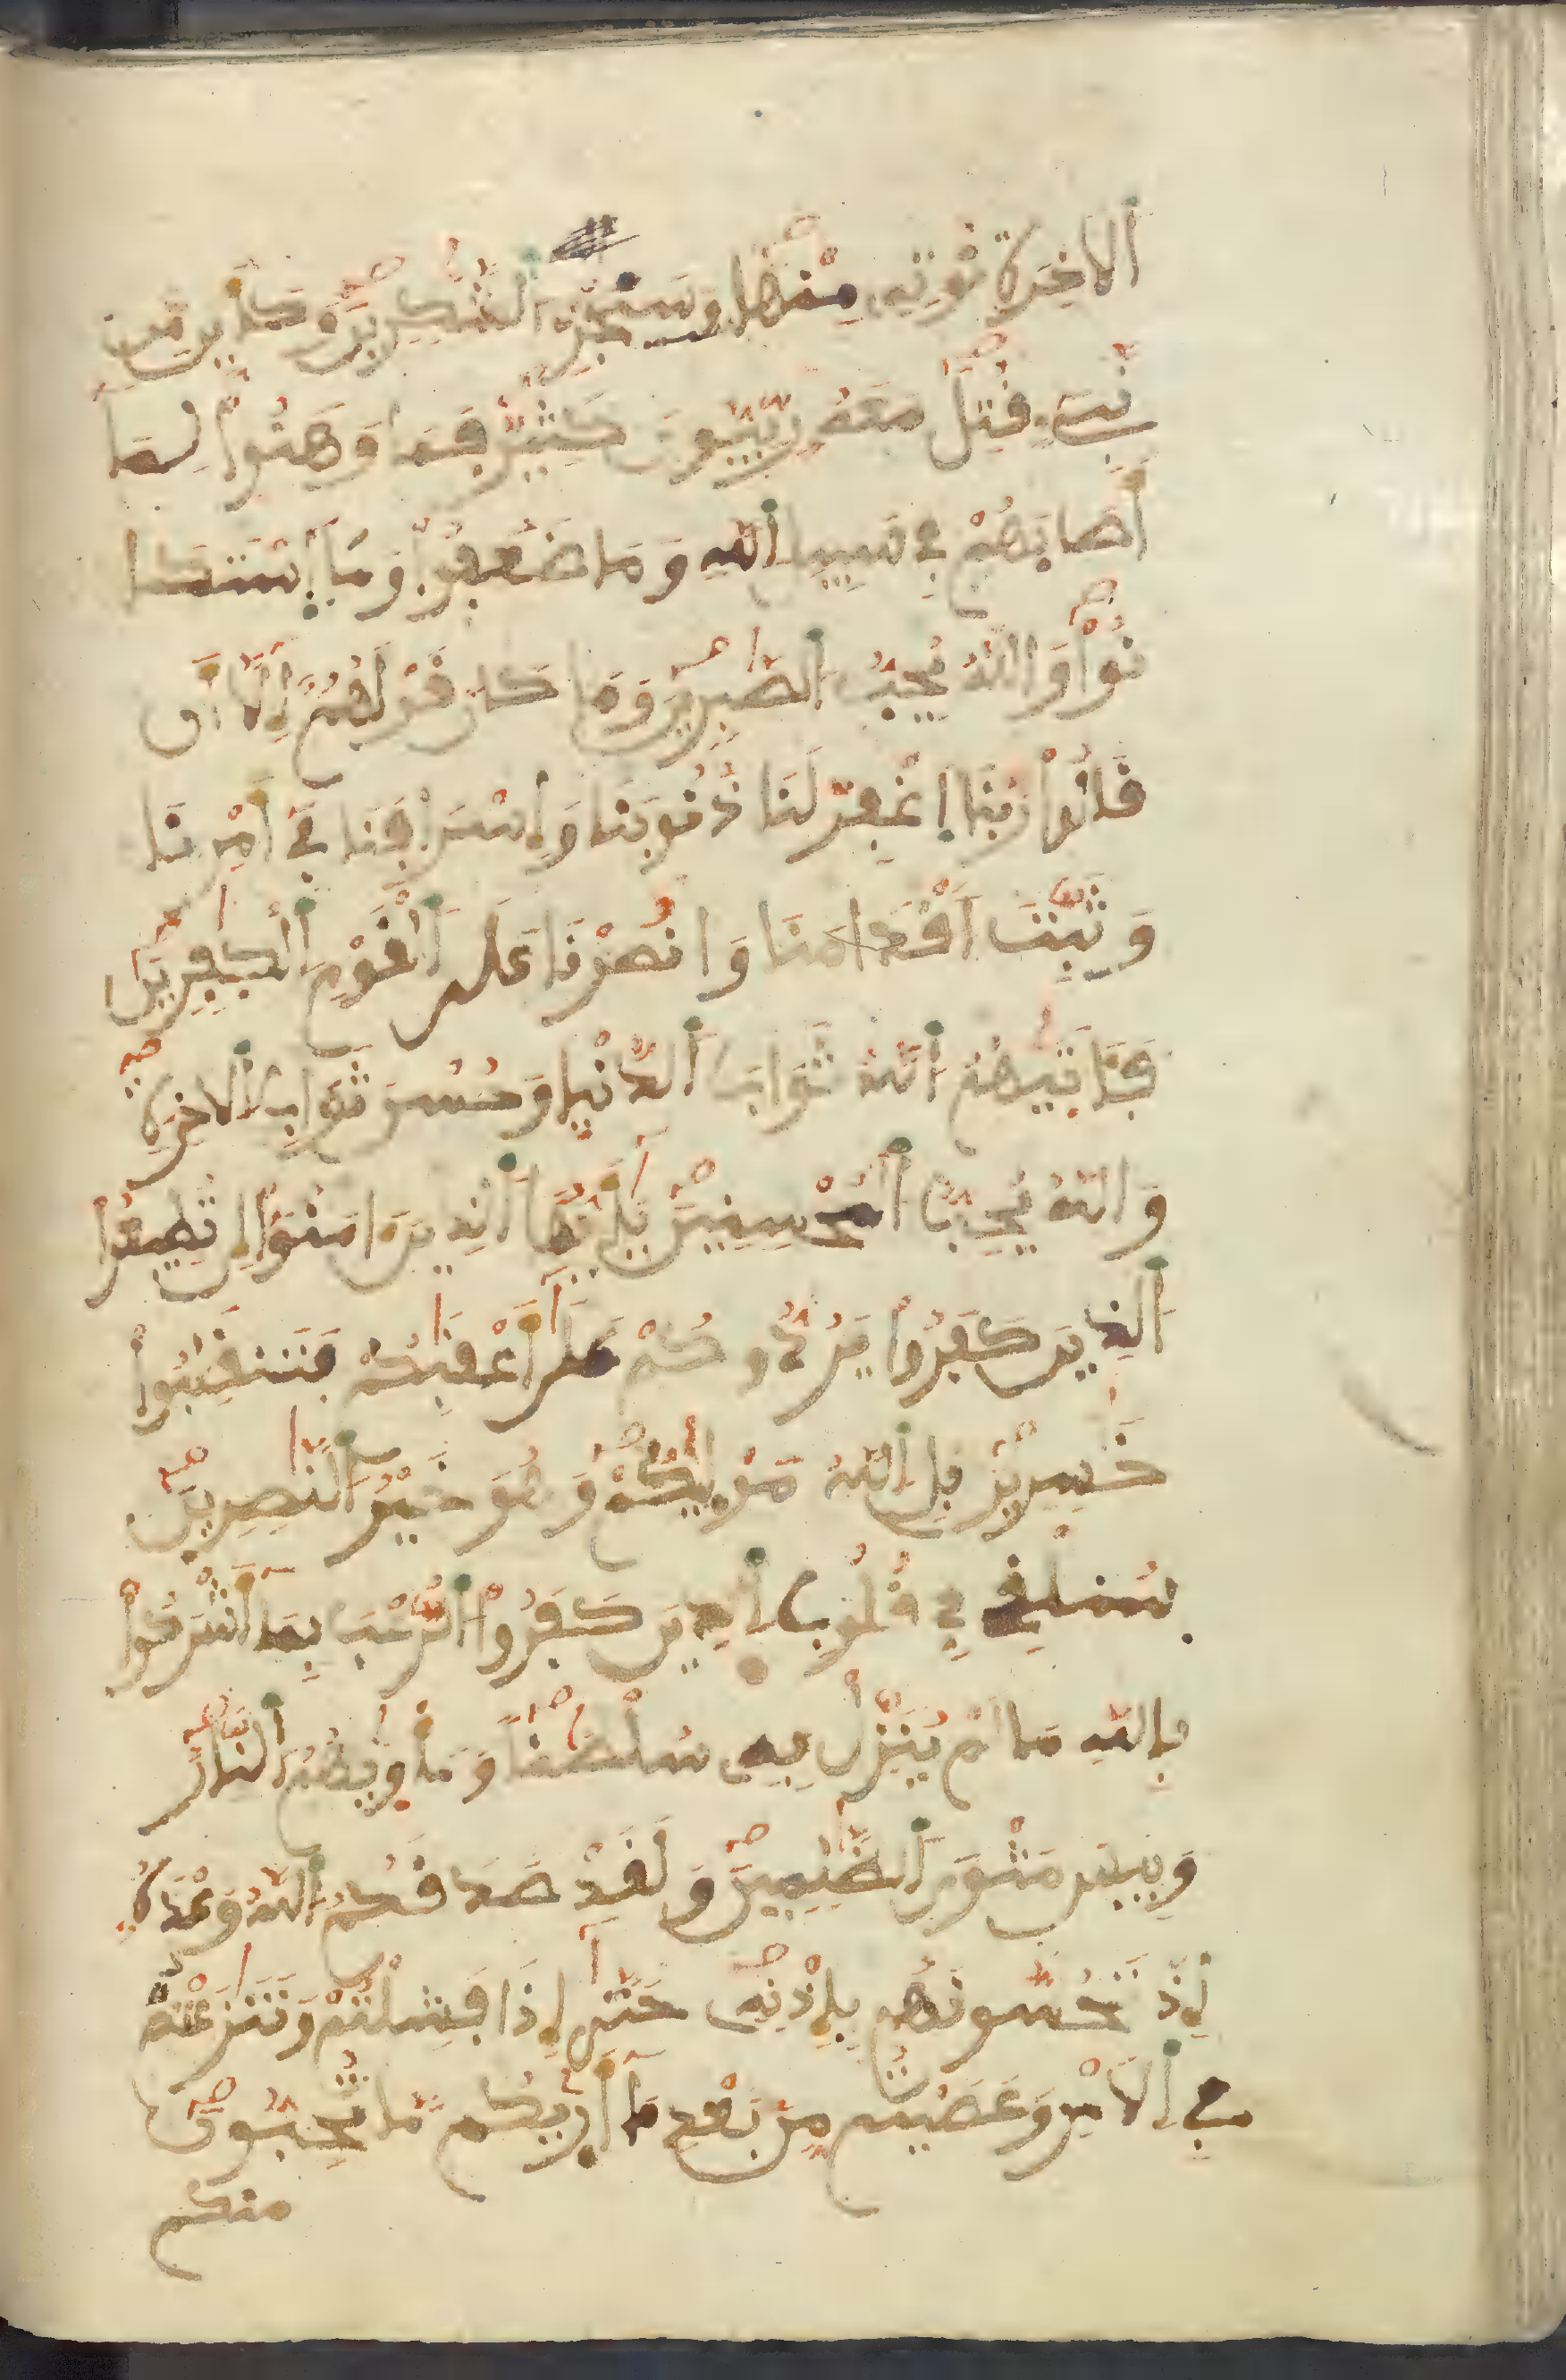 اَ۬لَاخِرَةِ نُوتِهِۦ مِنْهَا وَسَنَجْزِے اِ۬لشَّٰكِرِينَ وَكَأَيِّن مِّن
نَّبِےٓءٖ قُتِلَ مَعَهُۥ رِبِّيُّونَ كَثِيرٞ فَمَا وَهَنُواْ لِمَآ
أَصَابَهُمْ فِے سَبِيلِ اِ۬للَّهِ وَمَا ضَعُفُواْ وَمَا اَ۪سْتَكَا
نُواْ وَاللَّهُ يُحِبُّ اُ۬لصَّٰبِرِينَ وَمَا كَانَ قَوْلَهُمُۥٓ إِلَّآ أَن
قَالُواْ رَبَّنَا اَ۪غْفِرْ لَنَا ذُنُوبَنَا وَإِسْرَافَنَا فِےٓ أَمْرِنَا
وَثَبِّتَ اَقْدَامَنَا وَانصُرْنَا عَلَى اَ۬لْقَوْمِ اِ۬لْكٰفِرِينَ
فَـَٔاتَيٰهُمُ اُ۬للَّهُ ثَوَابَ اَ۬لدُّنْيَا وَحُسْنَ ثَوَابِ اِ۬لَاخِرَةِ
وَاللَّهُ يُحِبُّ اُ۬لْمُحْسِنِينَ يَٰٓأَيُّهَا اَ۬لذِينَ ءَامَنُوٓاْ إِن تُطِيعُواْ
اُ۬لذِينَ كَفَرُواْ يَرُدُّوكُمْ عَلَىٰٓ أَعْقَٰبِكُمْ فَتَنقَلِبُواْ
خَٰسِرِينَ بَلِ اِ۬للَّهُ مَوْلَيٰكُمْ وَهُوَ خَيْرُ اُ۬لنَّٰصِرِينَ
سَنُلْقِے فِے قُلُوبِ اِ۬لذِينَ كَفَرُواْ اُ۬لرُّعْبَ بِمَآ أَشْرَكُواْ
بِاللَّهِ مَا لَمْ يُنَزِّلْ بِهِۦ سُلْطَٰناٗ وَمَأْوَيٰهُمُ اُ۬لنَّارُ
وَبِيسَ مَثْوَى اَ۬لظَّٰلِمِينَ وَلَقَدْ صَدَقَكُمُ اُ۬للَّهُ وَعْدَهُۥٓ
إِذْ تَحُسُّونَهُم بِإِذْنِهِۦ حَتَّىٰٓ إِذَا فَشِلْتُمْ وَتَنَٰزَعْتُمْ
فِے اِ۬لَامْرِ وَعَصَيْتُم مِّنۢ بَعْدِ مَآ أَرَيٰكُم مَّا تُحِبُّونَ
منكم